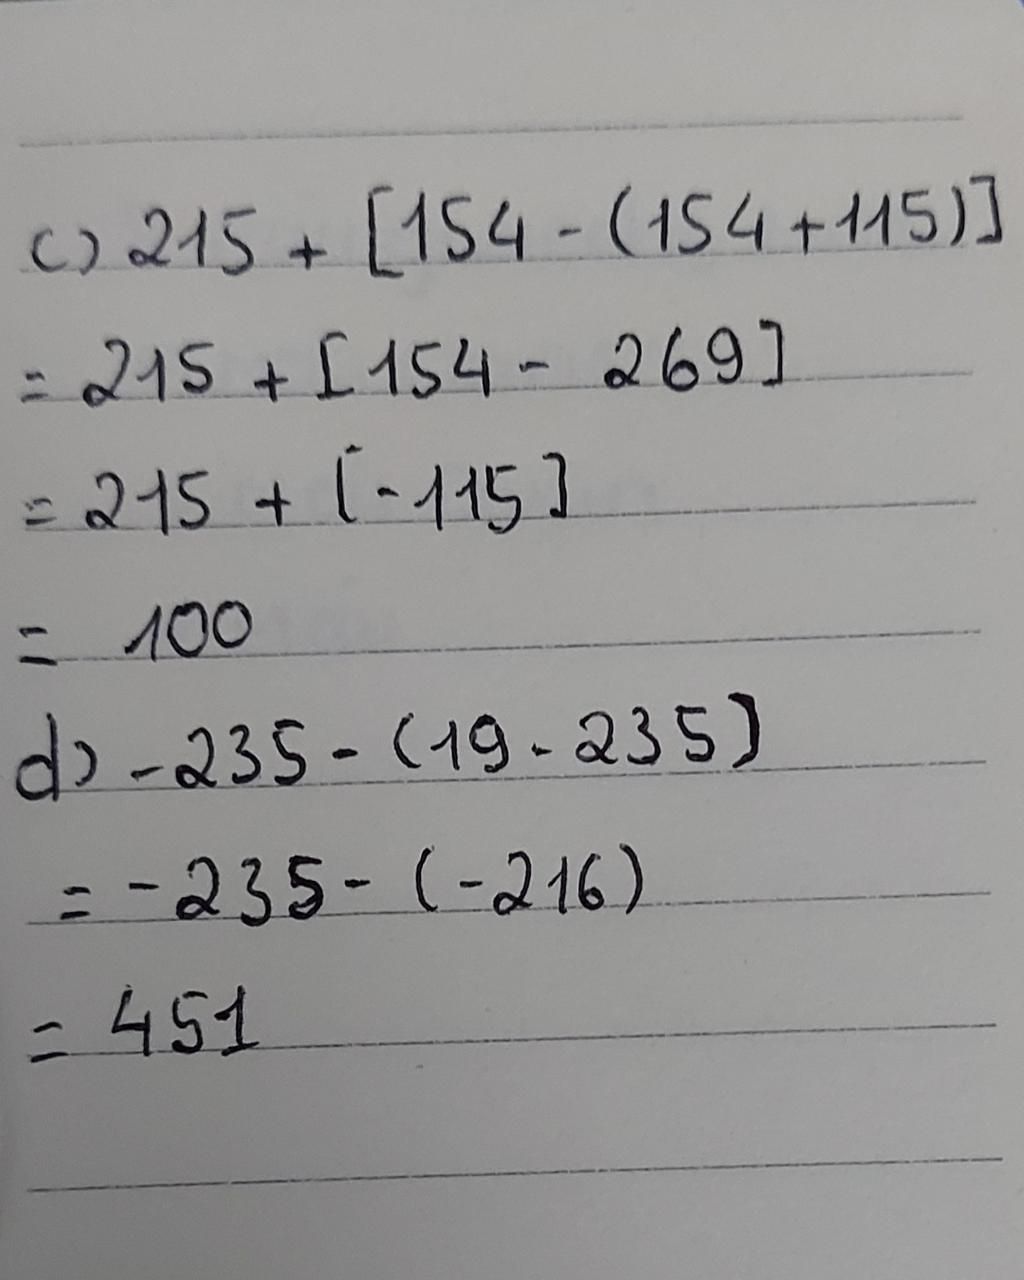 c) 215 + [154 - (154 + 115)]
= 215 + [154 - 269]
= 215 + [-115]
= 100
d) -235 - (19 - 235]
= -235 - (-216)
= 451